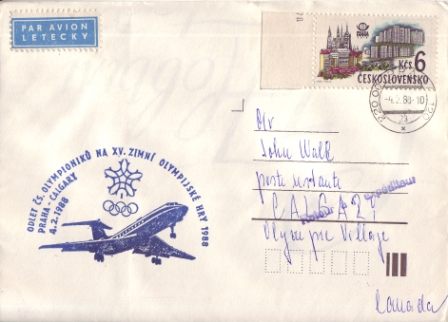 PAR AVION
LETECKY
Kčs 6
ČESKOSLOVENSKO
-4.2.88-10
ODLET ČS. OLYMPIONIKŮ NA XV. ZIMNÍ OLYMPIJSKÉ HRY 1988
PRAHA - CALGARY
4.2.1988
Mr
John
poste restante
CALGARY
Olympic Village
Canada